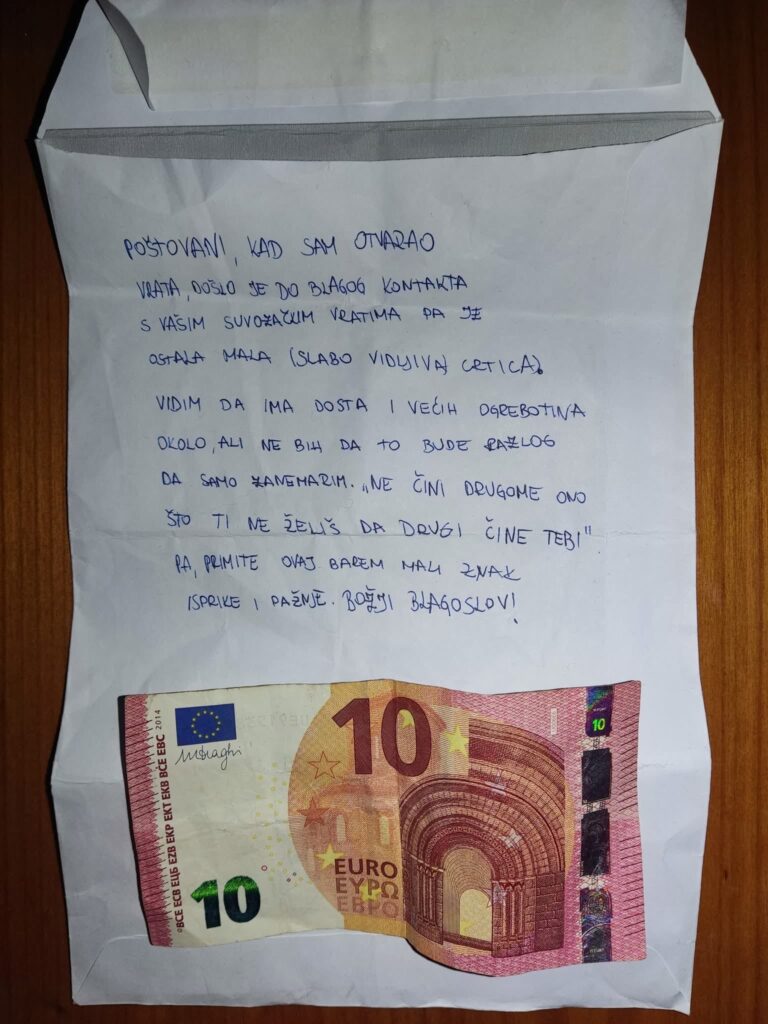 POŠTOVANI, KAD SAM OTVARAO
VRATA, DOŠLO JE DO BLAGOG KONTAKTA
S VAŠIM SUVOZAČKIM VRATIMA PA JE
OSTALA MALA (SLABO VIDLJIVA) CRTICA).
VIDIM DA IMA DOSTA I VEĆIH OGREBOTINA
OKOLO, ALI NE BIH DA TO BUDE RAZLOG
DA SAMO ZANEMARIM. „NE ČINI DRUGOME ONO
ŠTO TI NE ŽELIŠ DA DRUGI ČINE TEBI"
PA, PRIMITE OVAJ BAREM MALI ZNAK
ISPRIKE I PAŽNJE. BOŽJI BLAGOSLOV!
BCE ECB ЕЦБ EZB EKP EKT EKB BĊE EBC 2014
10
10
10
EURO
ΕΥΡΩ
ЕВРО